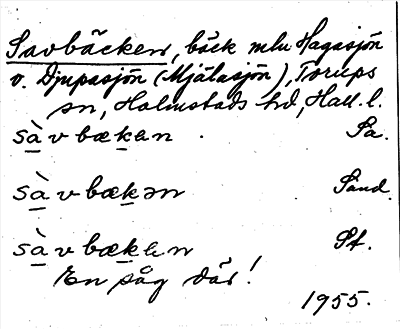 Savbäcken, bäck mlu Hagasjön
v. Djupasjön (Mjälasjön), Torups
sn, Halmstads hd, Hall. l.
sàvbækan Sa.
sàvbækən Sand.
sàvbækan St.
En såg där!
1955.